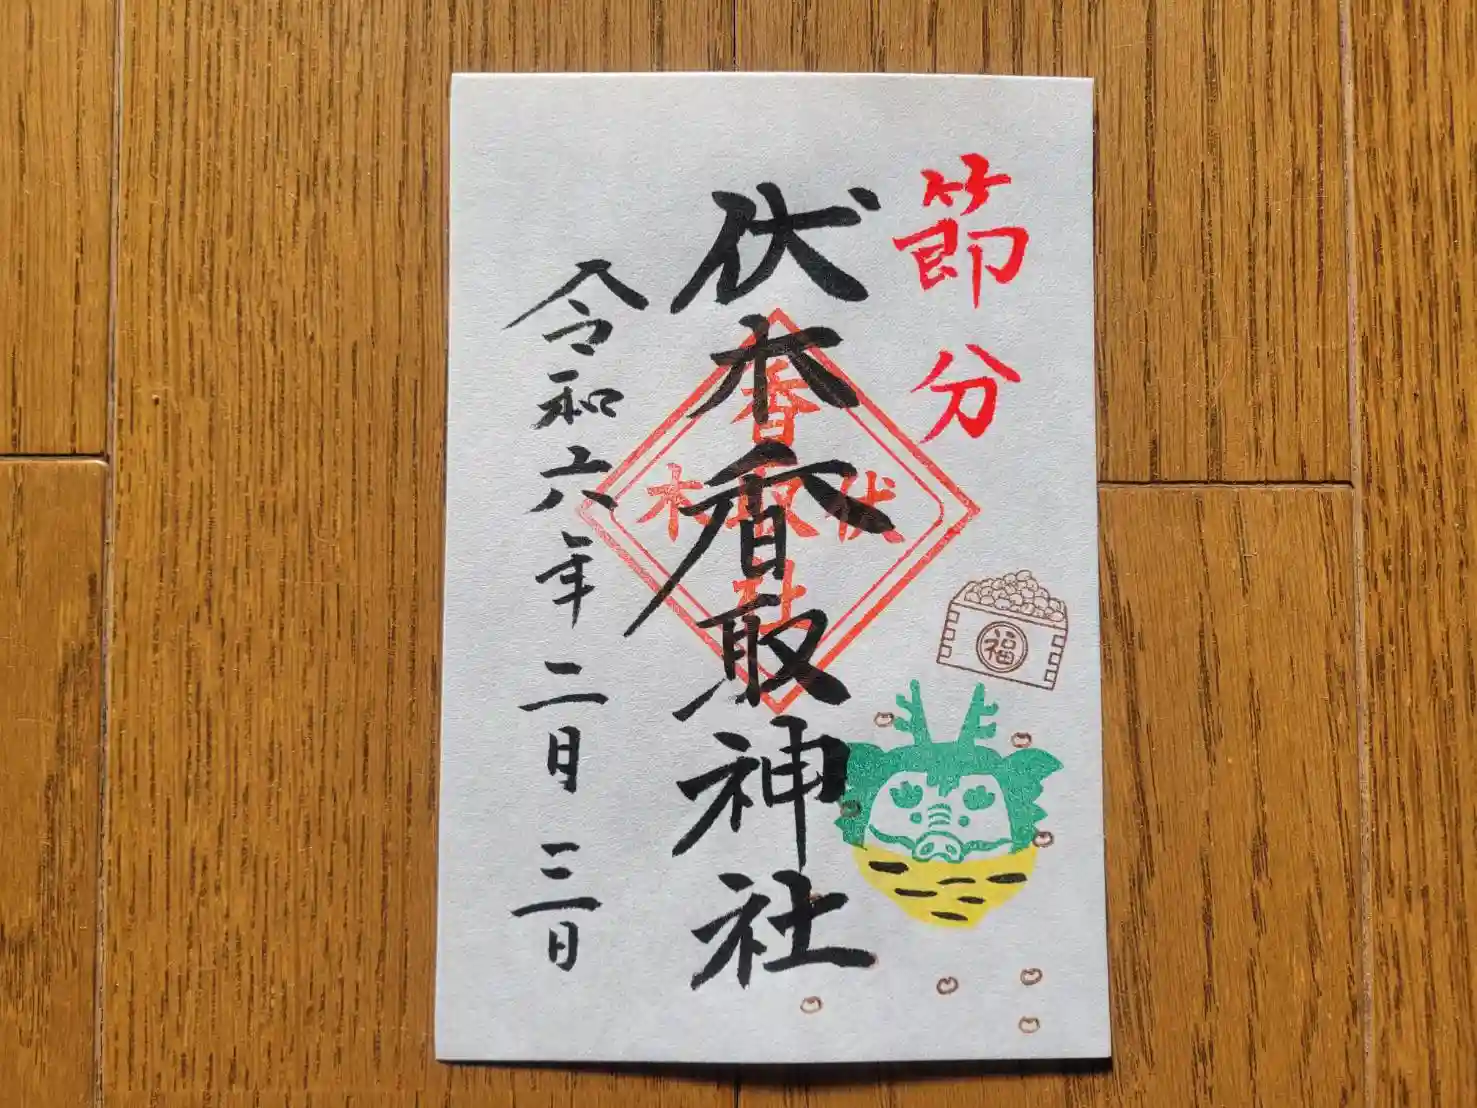 節分
伏木香取神社
令和六年二月三日
香
伏取木
社
福